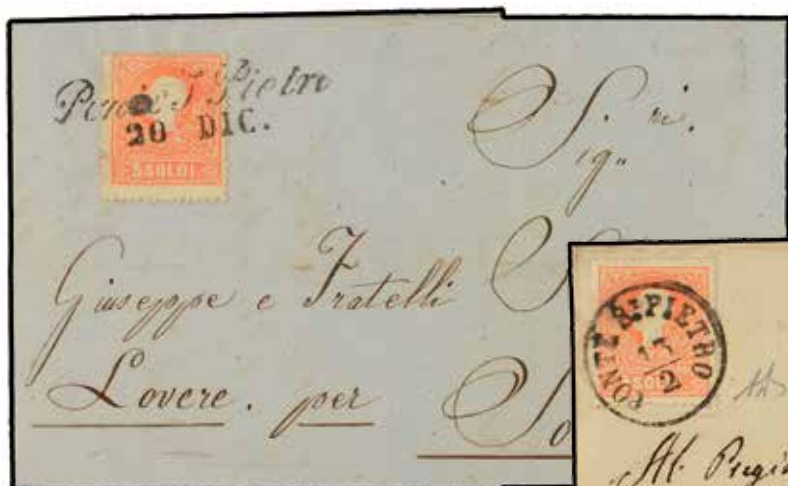 Ponte S. Pietro
20 DIC.
5 SOLDI
S. ri.
Sig.
Giuseppe e Fratelli
Lovere. per So
PONTE S. PIETRO
13/2
SOLDI
Al